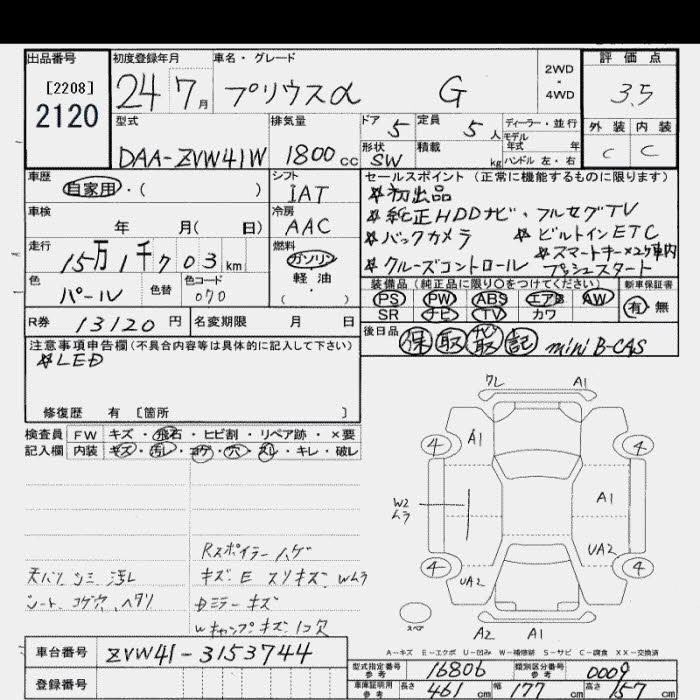 出品番号 初度登録年月 車名・グレード 評価点
[2208]
2120
24 7月 プリウスα G 2WD・4WD 3.5
型式 排気量 ドア 5 定員 5人 ディーラー・並行 外装 内装
モデル年式 年
DAA-ZVW41W 1800cc 形状 SW 積載 kg ハンドル 左・右 C C
車歴 自家用・( ) シフト IAT
セールスポイント (正常に機能するものに限ります)
☆初出品
☆純正HDDナビ・フルセグTV
☆バックカメラ ☆ビルトインETC
☆スマートキー×2ケ車内
☆クルーズコントロール プッシュスタート
車検 年 月( 日) 冷房 AAC
走行 15万1千703km 燃料 ガソリン
軽油
・( )
色 パール 色替 色コード 070
装備品 (純正品に限り○をつけてください) 新車保証書
PS PW ABS エアB AW 有・無
SR ナビ TV カワ
R券 13120円 名変期限 月 日
後日品 保 取 取 記 mini B-CAS
注意事項申告欄(不具合内容等は具体的に記入して下さい)
☆LED
修復歴 有 [箇所 ]
検査員 FW キズ・飛石・ヒビ割・リペア跡・×要
記入欄 内装 キズ・汚レ・コゲ・穴・スレ・キレ・破レ
7L A1
4 A1 4
W2 ムラ A1
UA2
4 UA2 4
スペア A2 A1
Rスポイラー ハゲ
天バリ シミ 汚レ キズ、E スリキズ、Wムラ
シート コゲ穴、ヘタリ Dミラー キズ
A-キズ E-エクボ U-凹み W-補修跡 S-サビ C-腐食 XX-交換済
車台番号 ZVW41-3153744
登録番号
型式指定番号 参考 16806 類別区分番号 参考 0009
車庫証明用 参考 長さ 461cm 幅 177cm 高さ 157cm